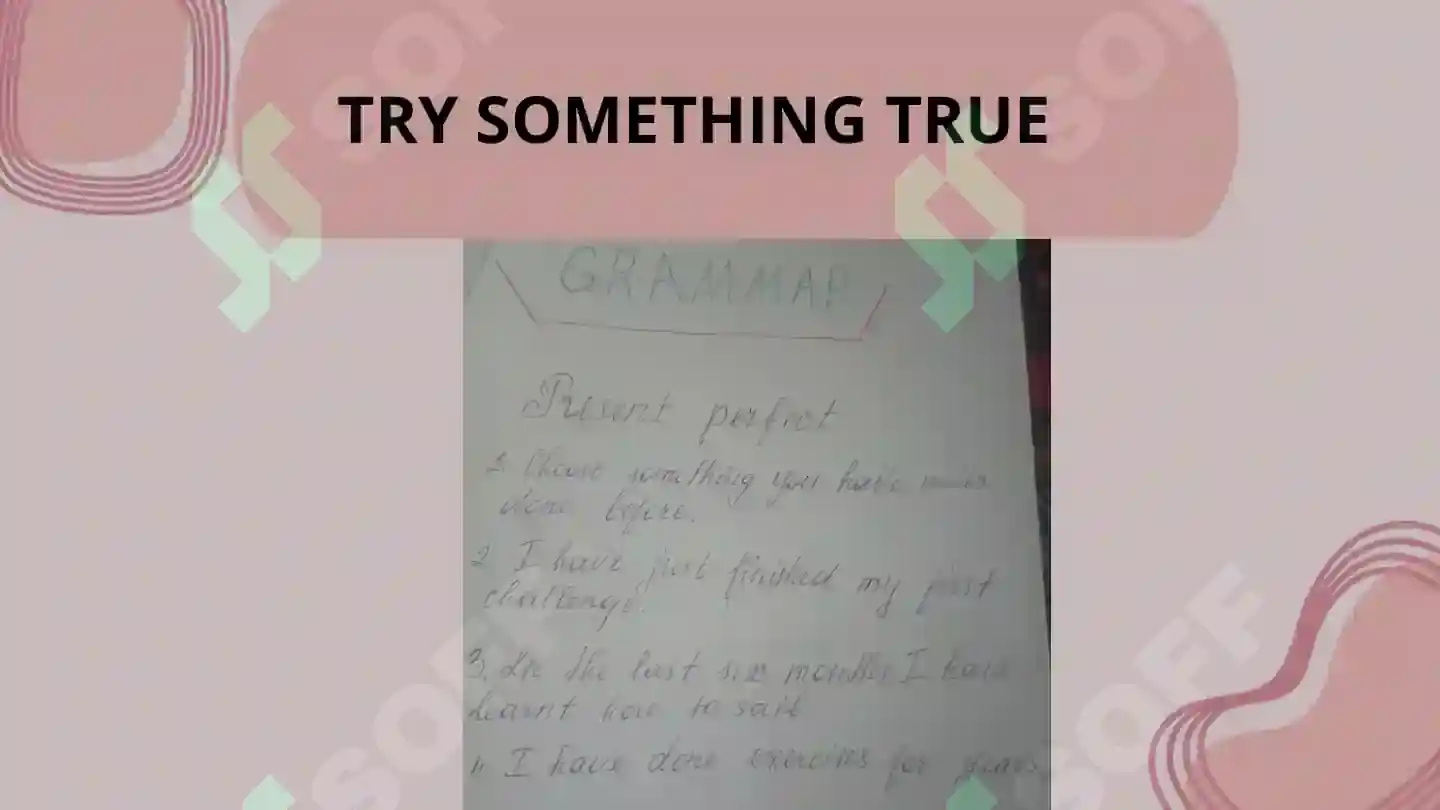 TRY SOMETHING TRUE
GRAMMAR
Present perfect
1. Choose something you have never
done before.
2. I have just finished my first
challenge.
3. In the last six months I have
learnt how to sail
4. I have done exercises for years
SOFF
SOFF
SOFF
SOFF